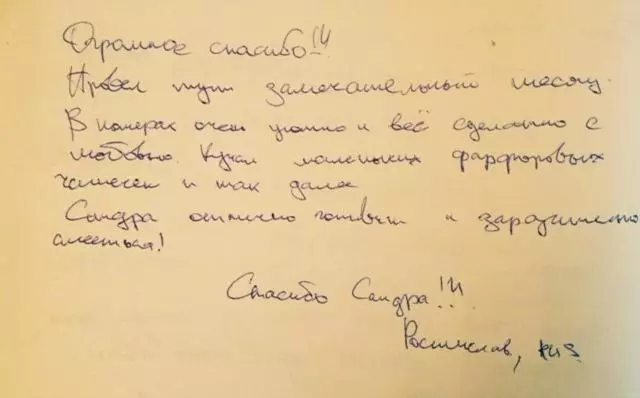 Огромное спасибо!!!
Провел тут замечательный месяц.
В номерах очен уютно и всё сделанно с
любовью. Куча маленьких фарфоровых
чашечек и так далее
Сандра отлично готовит и заразительно
смеёться!
Спасибо Сандра!!!
Ростислав,